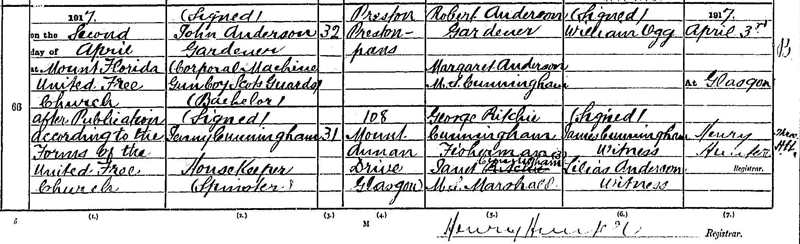 1917.
on the Second
day of April
at Mount Florida
United Free
Church
after Publication
according to the
Forms of the
United Free
Church
66
(Signed)
John Anderson
Gardener
(Corporal Machine
Gun Coy Scots Guards)
(Bachelor)
(Signed)
Fanny Cunningham
House Keeper
(Spinster)
32
31
Preston
Preston-
pans
108
Mount
Annan
Drive
Glasgow
Robert Anderson
Gardener
Margaret Anderson
M.S. Cunningham
George Ritchie
Cunningham
Fisherman
Cunningham
Janet Ritchie
M.S. Marshall
(Signed)
William Ogg
(Signed)
James Cunningham
Witness
Lilias Anderson
Witness
1917.
April 3rd
At Glasgow
Henry
Hunter
Registrar.
5
(1.)
(2.)
(3.)
(4.)
(5.)
(6.)
(7.)
M
Henry Hunter
Registrar.